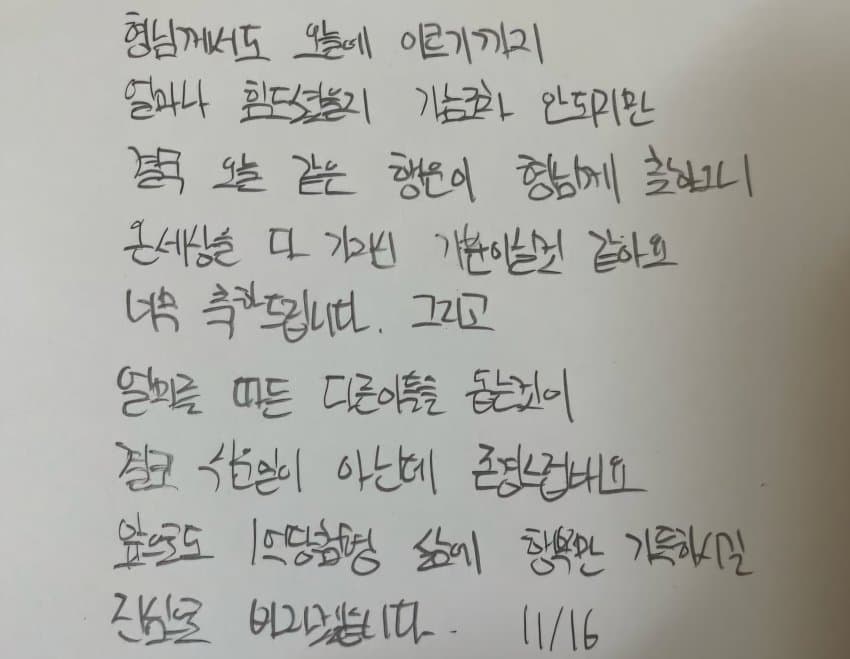 형님께서도 오늘에 이르기까지
얼마나 힘드셨을지 가늠조차 안되지만
결국 오늘 같은 행운이 형님께 찾아오니
온세상을 다 가지신 기분이실것 같아요
너무 축하드립니다. 그리고
얼마를 따든 다른이들을 돕는것이
결코 쉬운일이 아닌데 존경스럽네요
앞으로도 1억당첨형 삶에 행복만 가득하시길
진심으로 바라겠습니다. 11/16